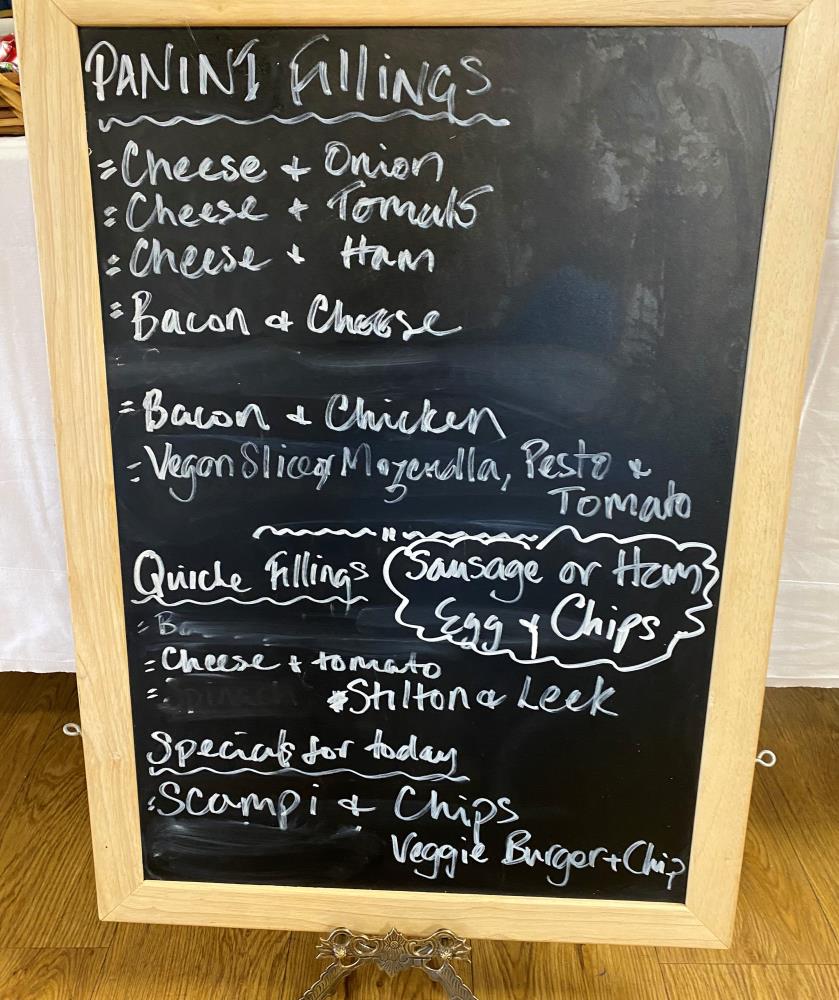 PANINI FilliNGS
= Cheese + Onion
= Cheese + Tomato
= Cheese + Ham
= Bacon & Cheese
= Bacon & Chicken
= Vegan Slice, Mozerella, Pesto &
Tomato
Quiche Fillings
Sausage or Ham
Egg & Chips
= Cheese + tomato
= Spinach * Stilton & Leek
Specials for today
= Scampi & Chips
Veggie Burger + Chip